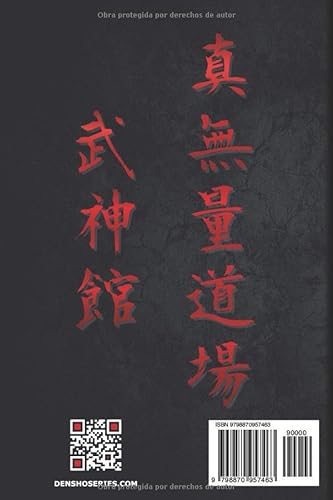 Obra protegida por derechos de autor
真無量道場
武神館
ISBN 9798870957463
90000
9 798870 957463
DENSHOSERIES.COM
Obra protegida por derechos de autor